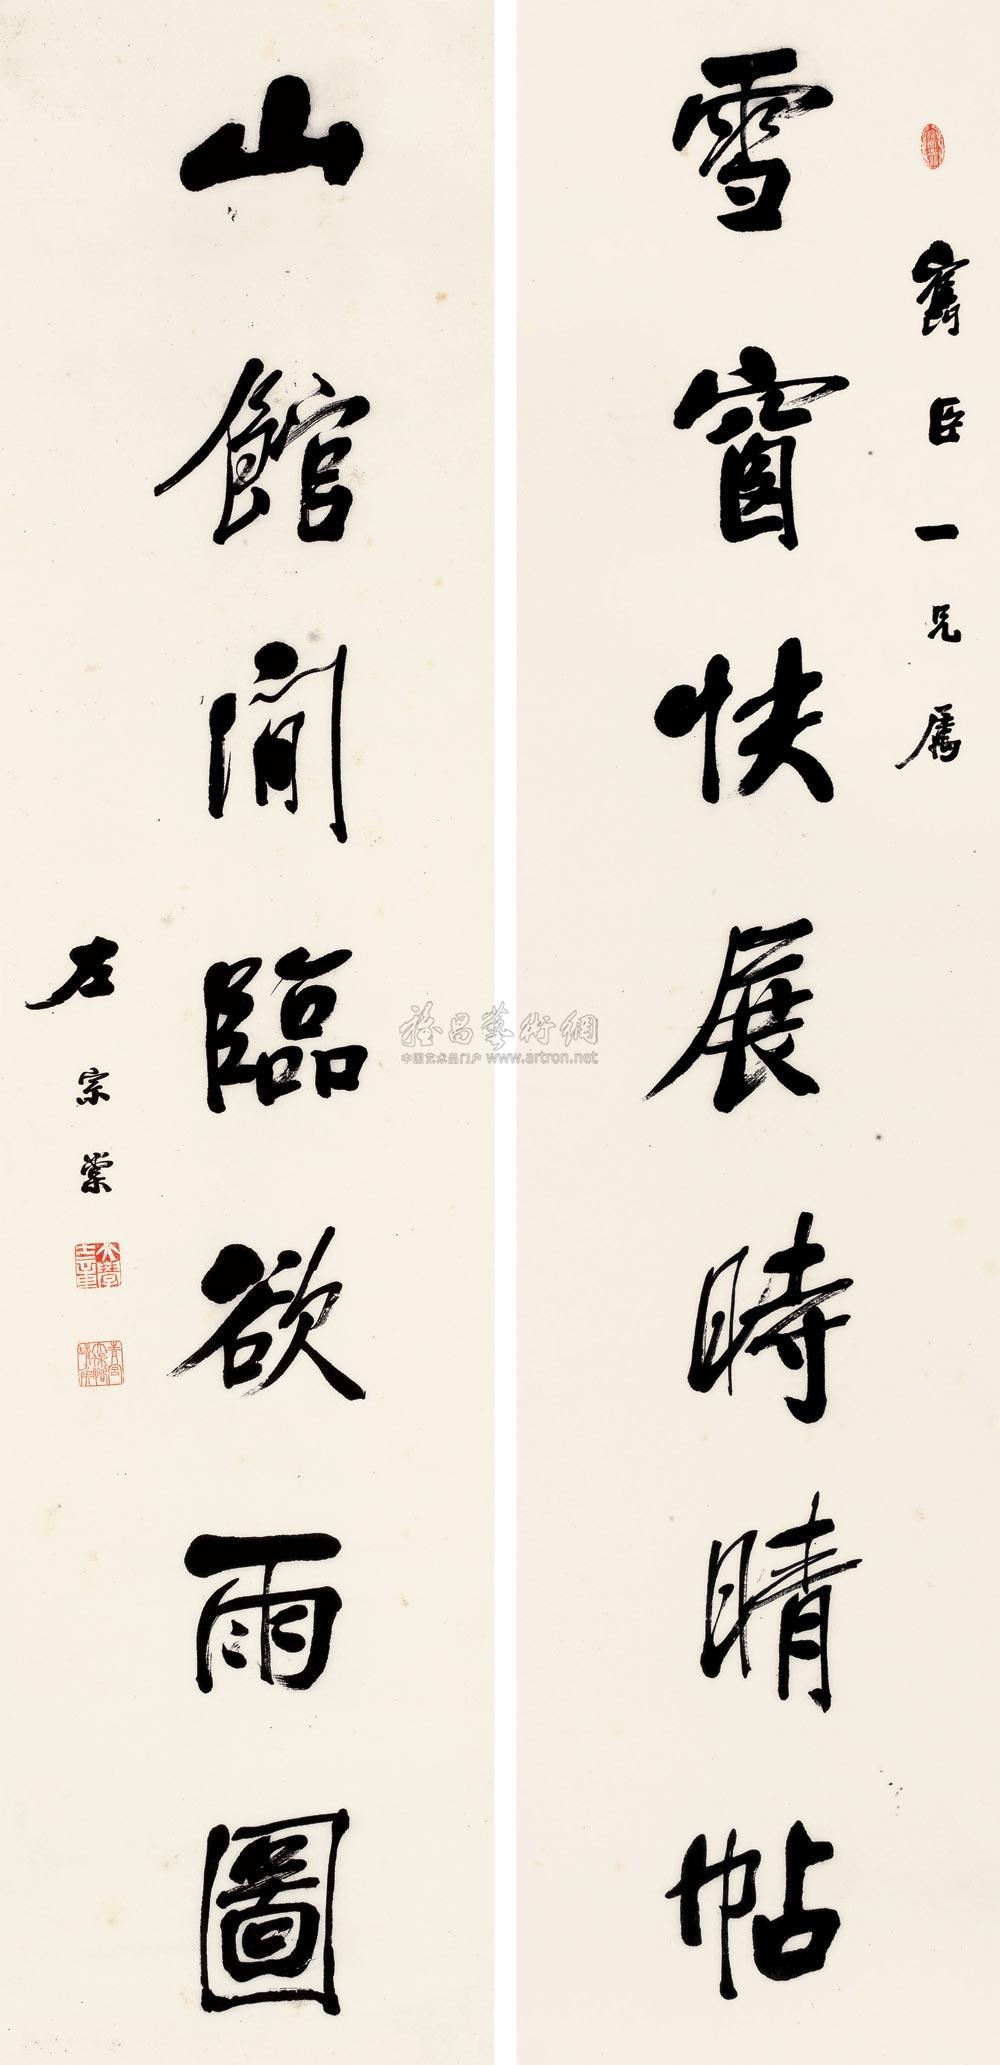 雪窗快展時晴帖
臣一兄屬
山館閒臨欲雨圖
左宗棠
雅昌藝術網
中国艺术品门户 www.artron.net